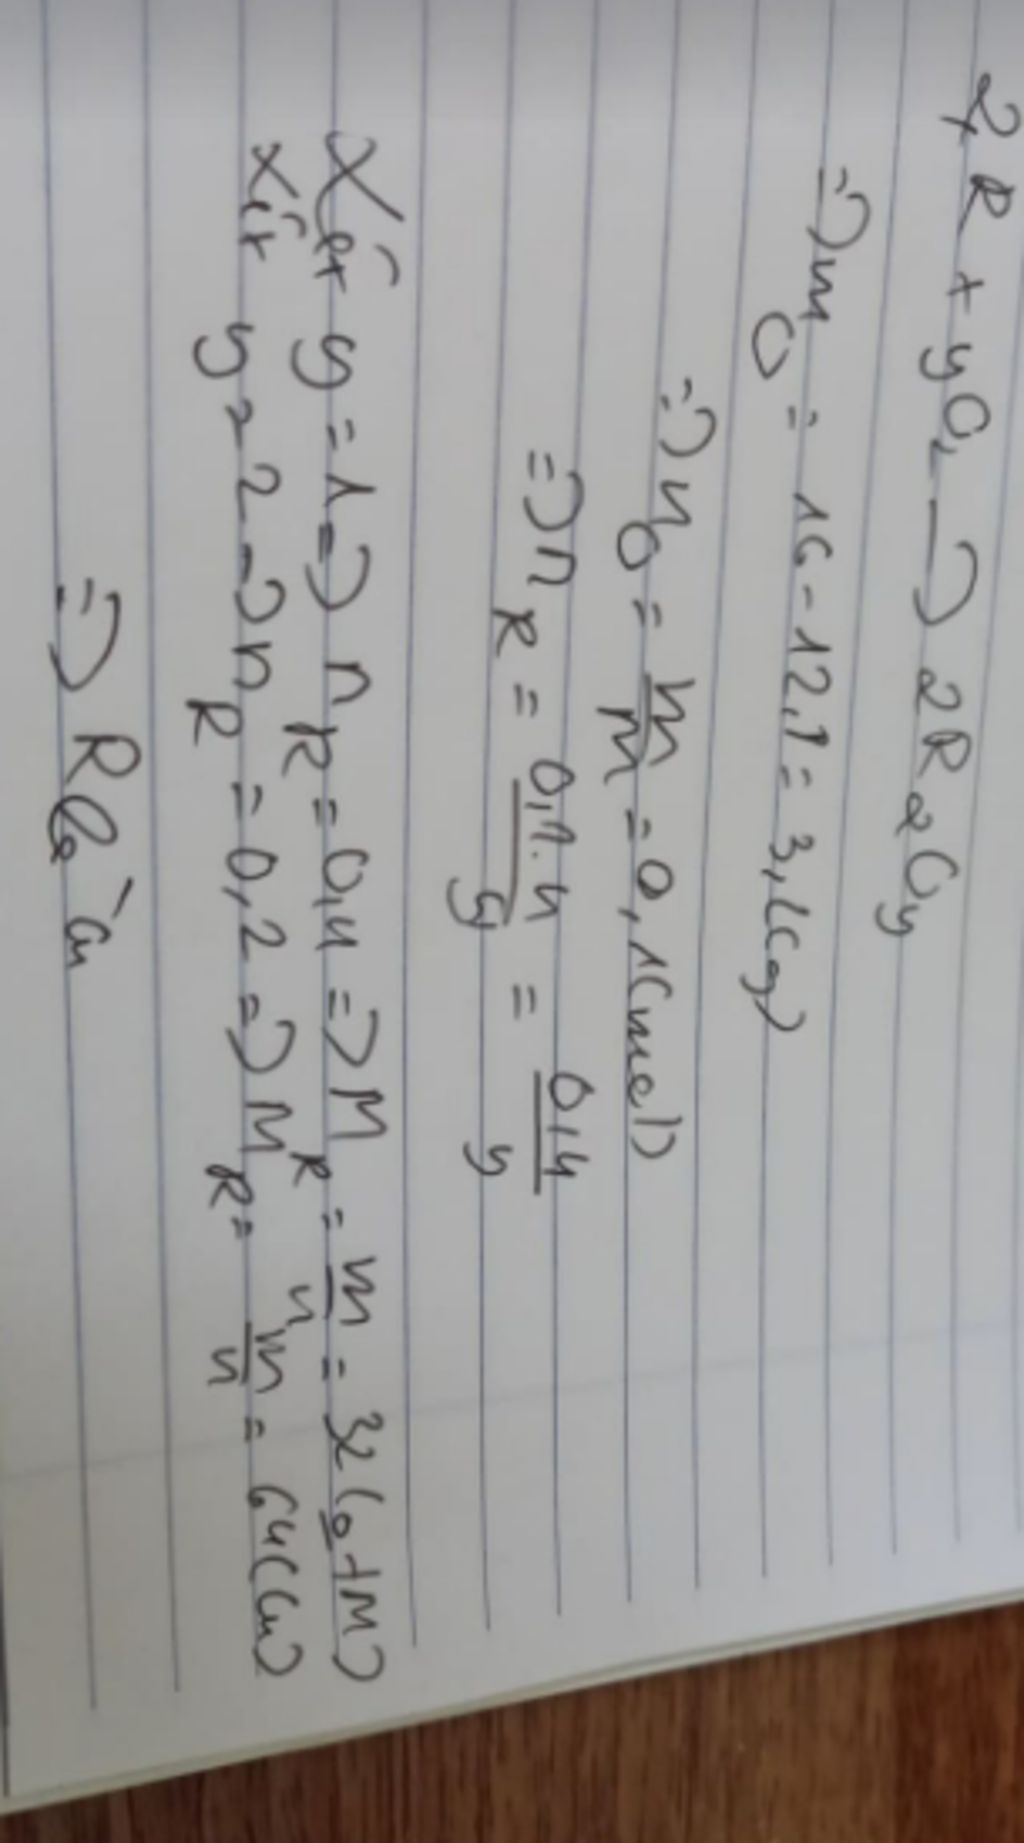 2R + yO₂ → 2R₂Oy
=> m O = 16 - 12,8 = 3,2(g)
=> n O = m/M = 0,1(mol)
=> n R = 0,1.4/y = 0,4/y
Xét y = 1 => n R = 0,4 => M R = m/n = 32 (o tM)
Xét y = 2 => n R = 0,2 => M R = m/n = 64(Cu)
=> R là Cu